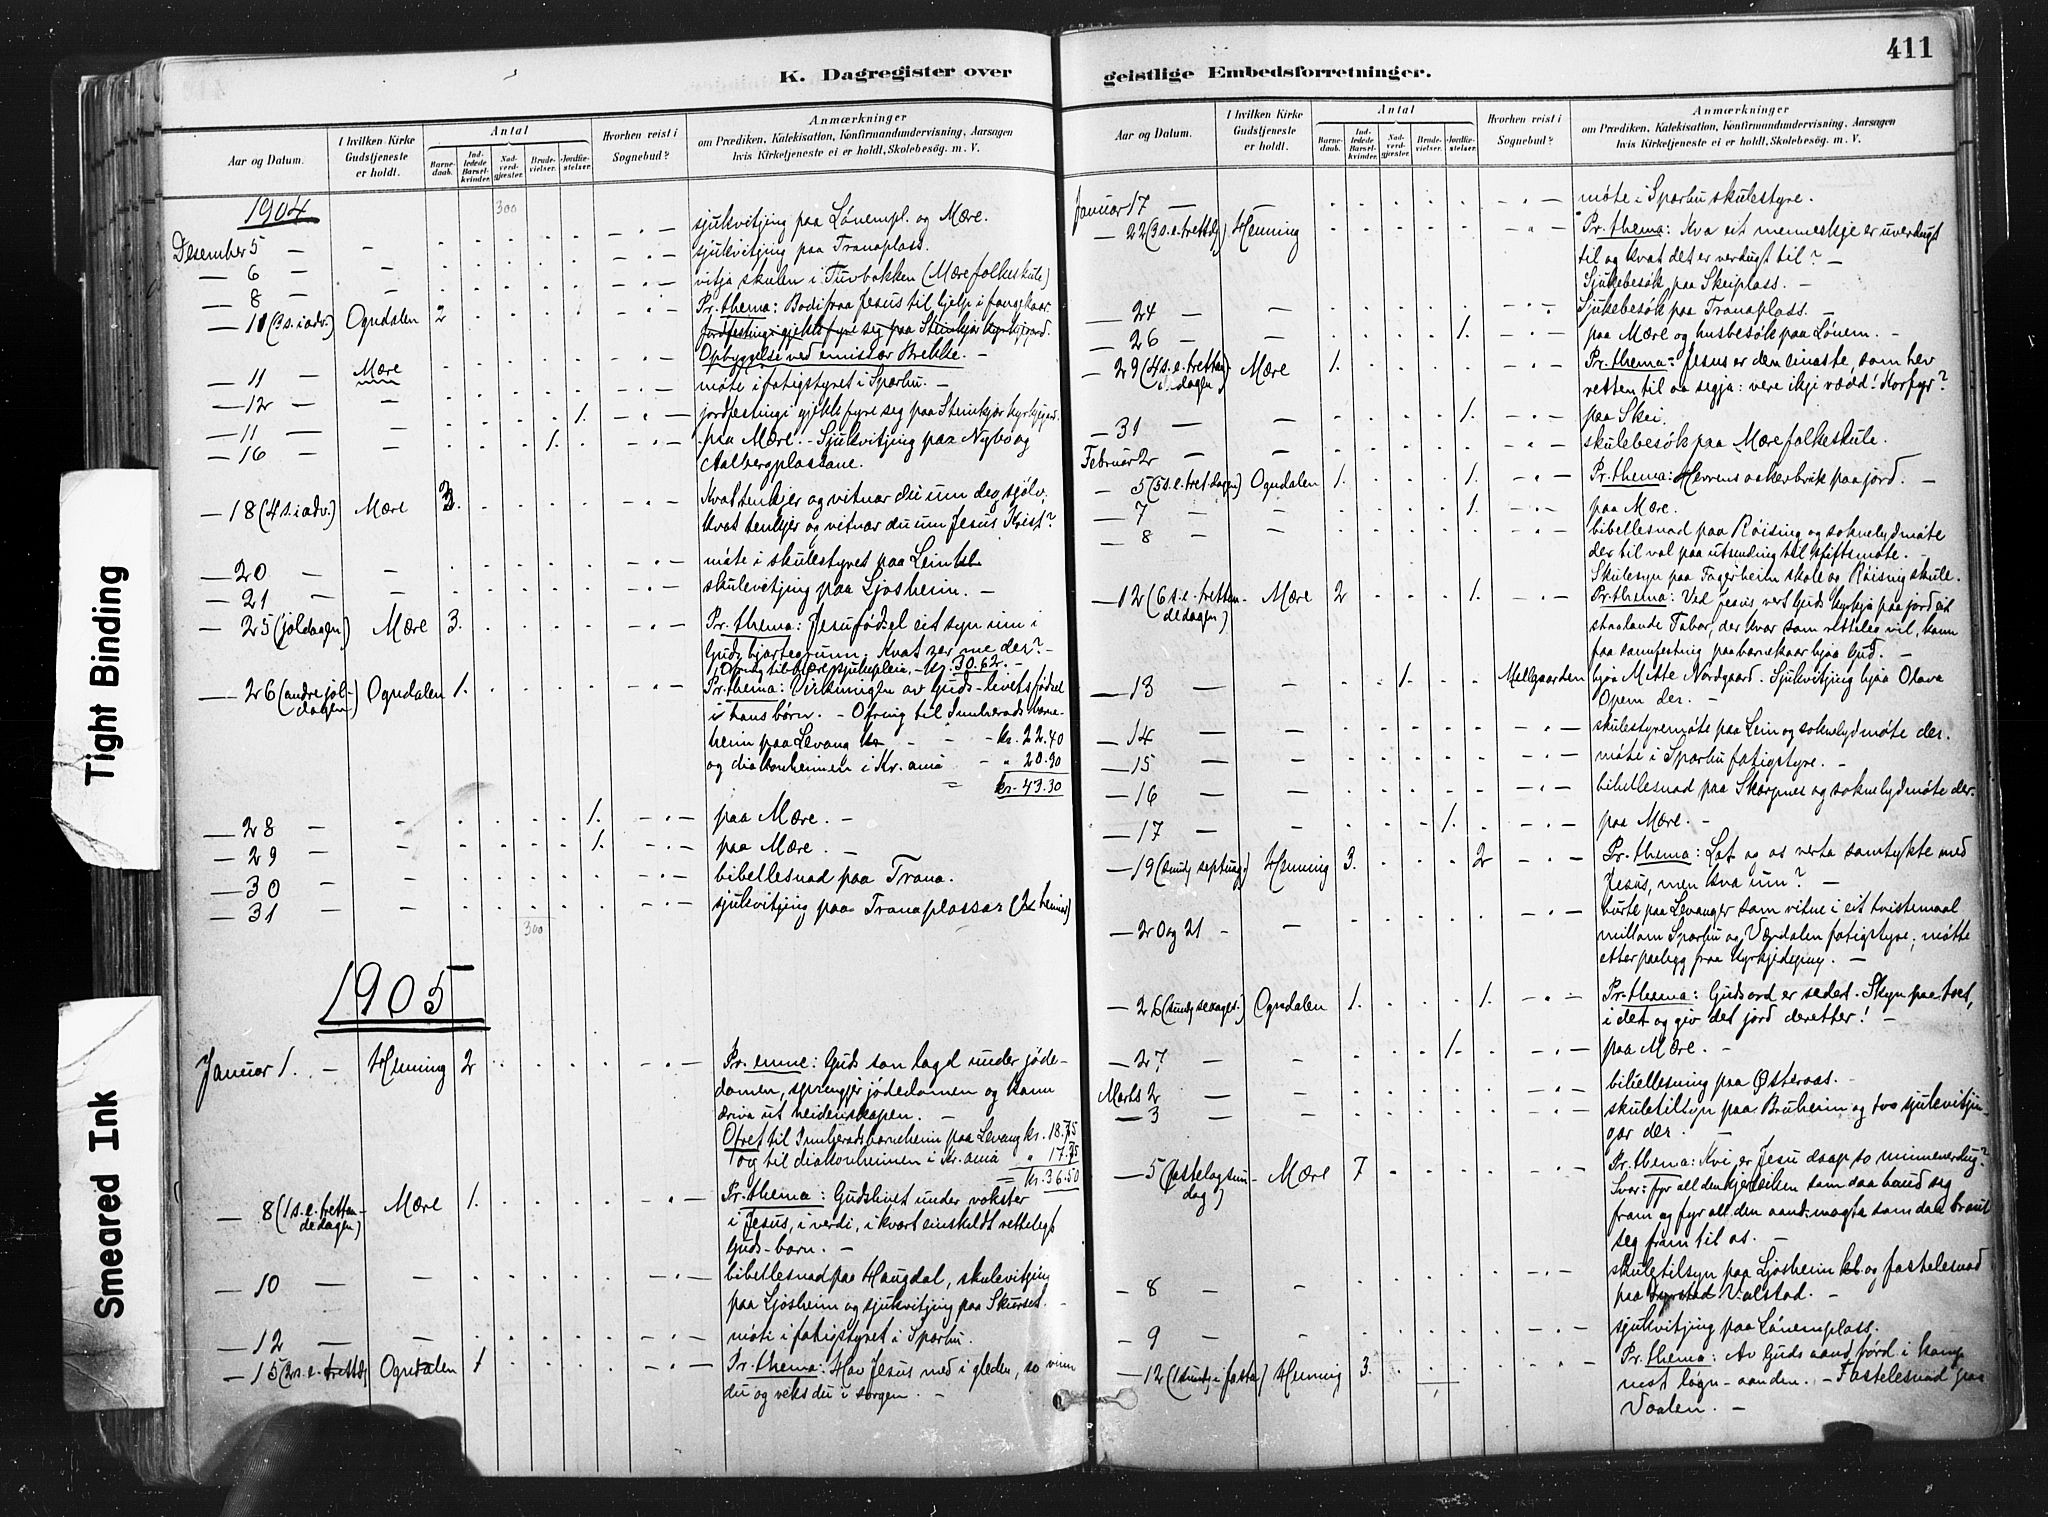 K. Dagregister over
geistlige Embedsforretninger.
411
Aar og Datum.
I hvilken Kirke Gudstjeneste er holdt.
Antal
Barnedaab.
Indledede Barselkvinder.
Nadverdgjæster.
Brudevielser.
Jordfæstelser.
Hvorhen reist i Sognebud?
Anmærkninger
om Prædiken, Katekisation, Konfirmandundervisning, Aarsagen
hvis Kirketjeneste ei er holdt, Skolebesøg. m. V.
1904 300
Desember 5 — — sjukvitjing paa Lónempl. og Mære.
— 6 — — sjukvitjing paa Tranaplass.
— 8 — — vitja skulen i Tuvbakken (Mære folkeskule)
— 11 (3 s. i adv.) Ogndalen 2 Pr. thema: Bod fraa Jesus til hjelp i fangekaar.
jordfestingi gjekk fyre seg paa Steinkjær kyrkjegard.
— 11 — Mære Opbyggelse ved emissær Brekke. —
— 12 — — móte i fatigstyret i Sparbu. —
— 11 — — 1. jordfestingi gjekk fyre seg paa Steinkjær kyrkjegard.
— 16 — — 1. paa Mære. — Sjukvitjing paa Nybo og
Aalbergplassane.
— 18 (4 s. i adv.) Mære 3. Kvat tenkjer og vitnar du um deg sjølv,
kvat tenkjer og vitnar du um Jesus Krist?
— 20 — — móte i skulestyret paa Lein
— 21 — — skulevitjing paa Ljosheim. —
— 25 (joldagen) Mære 3. Pr. thema: Jesu fødsel eit syn inn i
Guds hjartegrunn. Kvat ser me der? —
Ofring til Mære sjukepleie. — kr. 30.62. —
— 26 (andre joldagen) Ogndalen 1. Pr. thema: Virkningen av Guds-livets fødsel
i hans børn. — Ofring til Innherads barneheim
paa Levang — kr. 22.40
og diakonheimen i Kr.ania — " 20.90
= kr. 43.30
— 28 — — 1. paa Mære. —
— 29 — — 1. paa Mære. —
— 30 — — bibellesnad paa Trana.
— 31 — — sjukvitjing paa Tranaplassar (2 heimar)
300
1905
Januar 1. — Henning 2 Pr. emne: Guds son lagd under jødedomen,
sprengjer jødedomen og kann
driva ut heidenskapen. —
Ofret til Innheradsbarneheim paa Levang kr. 18.75
og til diakonheimen i Kr.ania " 17.75
= kr. 36.50
— 8 (1 s. e. trettendedagen) Mære 1. Pr. thema: Gudslivet under vokster
i Jesus, i verdi, i kvart einskildt rettelegt
Guds-barn. —
— 10 — — bibellesnad paa Haugdal, skulevitjing
paa Ljosheim og sjukvitjing paa Skurset. —
— 12 — — móti i fatigstyret i Sparbu.
— 15 (2 s. e. trettdg) Ogndalen 1 Pr. thema: Hav Jesus med i gleden, so vinn
du og veks du i sorgen. —
Aar og Datum.
I hvilken Kirke Gudstjeneste er holdt.
Antal
Barnedaab.
Indledede Barselkvinder.
Nadverdgjæster.
Brudevielser.
Jordfæstelser.
Hvorhen reist i Sognebud?
Anmærkninger
om Prædiken, Katekisation, Konfirmandundervisning, Aarsagen
hvis Kirketjeneste ei er holdt, Skolebesøg. m. V.
Januar 17 — — móte i Sparbu skulestyre.
— 22 (3 s. e. trettdg) Henning Pr. thema: Kva eit menneskje er uverdugt
til og kvat det er verdugt til? —
Sjukebesøk paa Skeiplass. —
— 24 — — Sjukebesøk paa Tranaplass. —
— 26 — — 1. paa Mære og husbesøk paa Lónem. —
— 29 (4 s. e. trettandedagen) Mære 1. Pr. thema: Jesus er den einaste, som hev
retten til aa segja: vere ikji rædd! Korfyr?
— 31 — — 1. paa Skei.
Februar 2 — — skulebesøk paa Mære folkeskule.
— 5 (5 s. e. tret.dagen) Ogndalen 1. 1. Pr. thema: Herrens aakerbruk paa jord. —
— 7 — — 1. paa Mære.
— 8 — — bibellesnad paa Róising og soknelydmóte
der til val paa utsending til stiftsmóte. —
Skulesyn paa Fagerheim skole og Róising skule.
— 12 (6 s. e. trettendedagen) Mære 2 1. Pr. thema: Ved Jesus vert Guds kyrkja paa jord eit
straalande Tabor, der kvar som retteleg vil, kann
faa samfesting paa barnekaar hjaa Gud. —
— 13 — — 1. Mellgaarden hjaa Mette Nordgaard. Sjukvitjing hjaa Olava
Opem der. —
— 14 — — skulestyremóte paa Lein og soknelydmóte der.
— 15 — — móte i Sparbu fatigstyre. —
— 16 — — bibellesnad paa Skarpnes og soknelydmóte der.
— 17 — — 1. paa Mære. —
— 19 (sundg septuag.) Henning 3. 2 Pr. thema: Lat og os verta samtykte med
Jesus, men kva um? —
— 20 og 21 — — burte paa Levanger som vitne i eit tvistemaal
millom Sparbu og Værdalen fatigstyre; møtte
etter paalegg fraa Kyrkjedeping. —
— 26 (sundg sexages.) Ogndalen 1. 1. Pr. thema: Guds ord er sedet. Skyn paa tvet,
i det og giv det jord deretter! —
— 27 — — 1. paa Mære. —
Marts 2 — — bibellesning paa Østeraas. —
— 3 — — skuletilsyn paa Bruheim og tvo sjukvitjingar
der. —
— 5 (fastelagsundag) Mære 7 Pr. thema: Kvi er Jesu daap so minneverdug?
Svar: fyr all den kjerleiken som daa baud seg
fram og fyr all den aandsmagta som daa braut
seg fram til os. —
— 8 — — skuletilsyn paa Ljosheim og fastelesnad
paa Valstad. —
— 9 — — sjukvitjing paa Lónemplass.
— 12 (1 sundg i fasta) Henning 3. Pr. thema: Av Guds aand førd i kamp
mot løgn-aanden. — Fastelesnad paa
Vaalen. —
Tight Binding
Smeared Ink